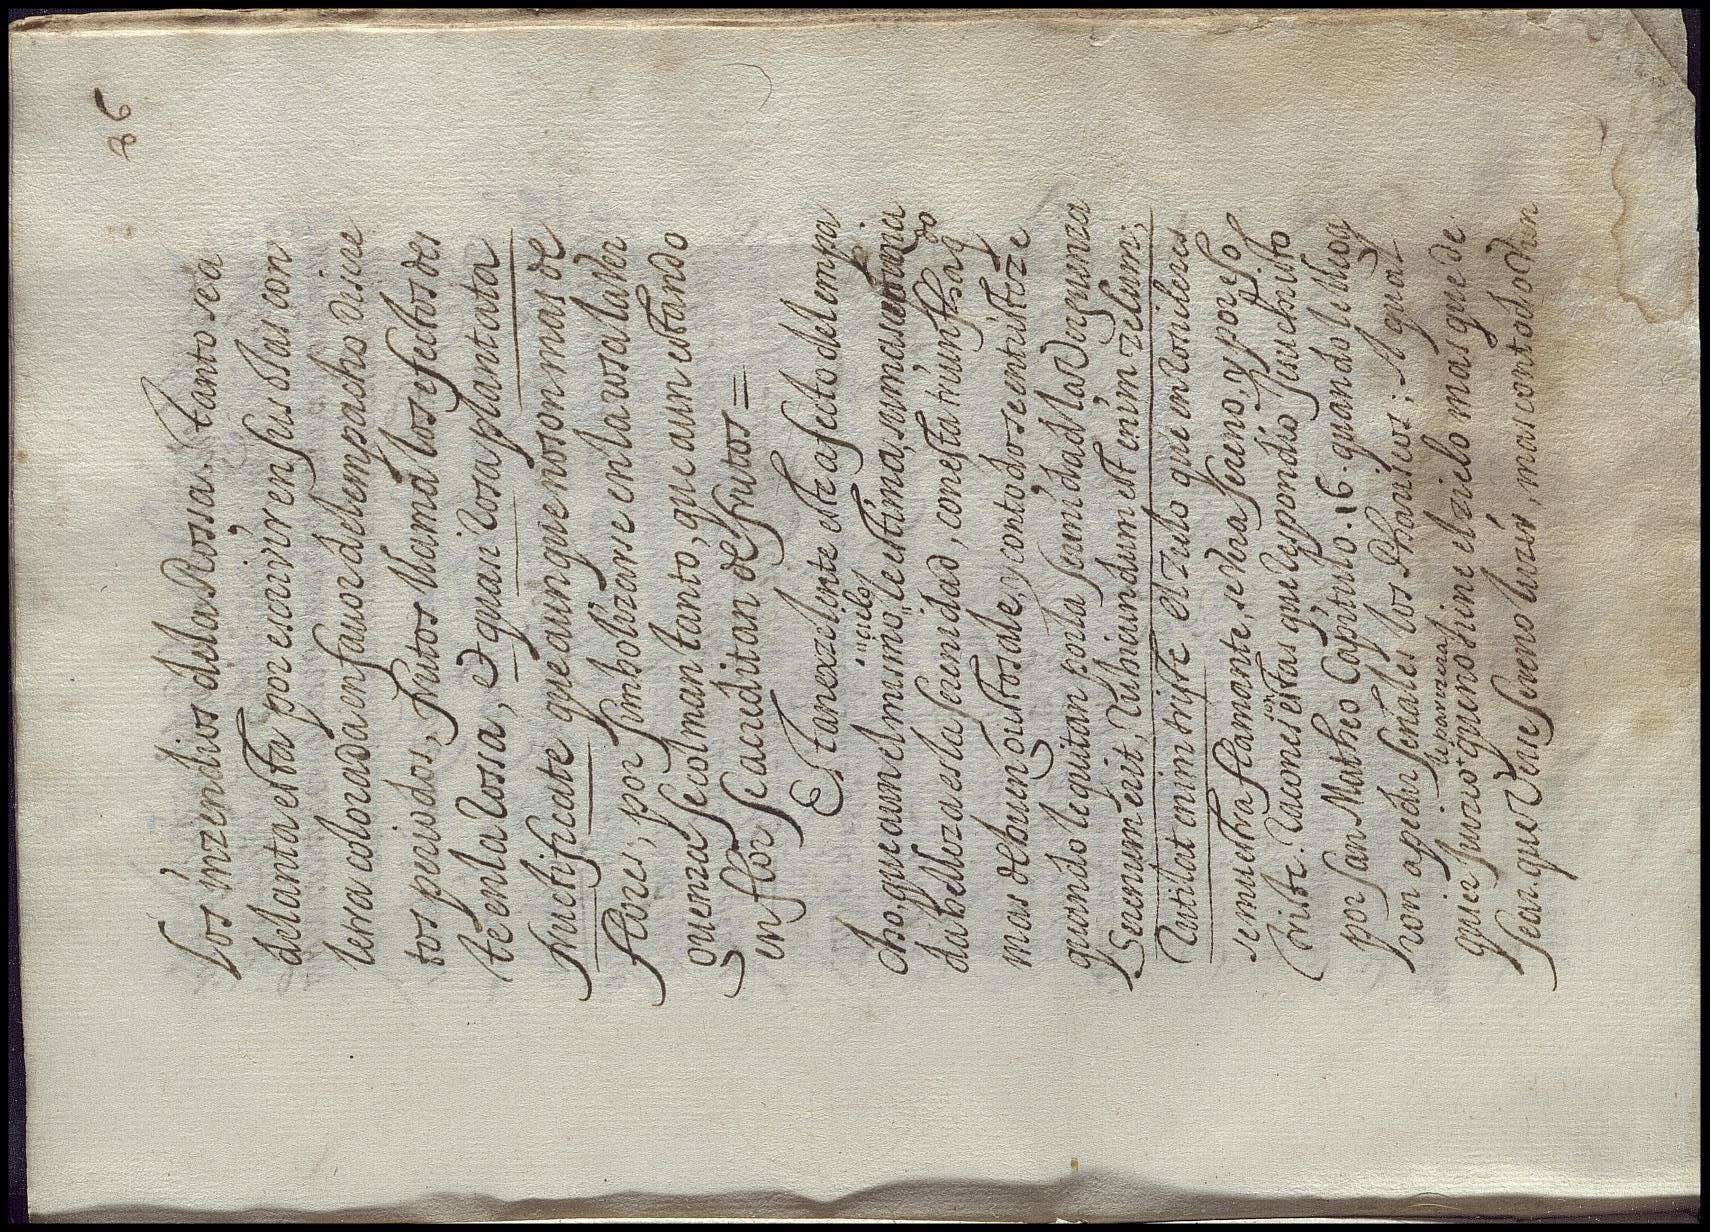 36
los inzendios de la Rossa. tanto se a
delanta esta por escrivir en sus ojas con
letra colorada en fauor del empacho disire
tos pareidos, frutos llama los efectos des
te en la rossa, Et quasi rosa plantata
fructificate que aunque no son mas de
flores, por simbolizarse en la rosa la ver
guenza se colman tanto, que aun estando
en flor se acreditan de frutos =
Es tan exzelente este afecto del empa
cho, que aun el mismo cielo le estima, su mas
da belleza es la serenidad, con esta triunpha q
mas de buen gusto sale, y con todo se entristeze
quando le quitan por la serenidad la verguenza
Serenum erit, rubicundum est enim zelum;
Rutilat enim triste el zielo que entonzes
se muestra flamante, se vera sereno, y por eso
triste. razones son estas que respondio Jesuchristo
por San Matheo Capitulo. 16. quando le llega
ron a pedir señales los Phariseos: A qual
quier Juizio le parezera que no tiene el zielo mas que de
sear. que verse sereno luzir, mas con todo dizen